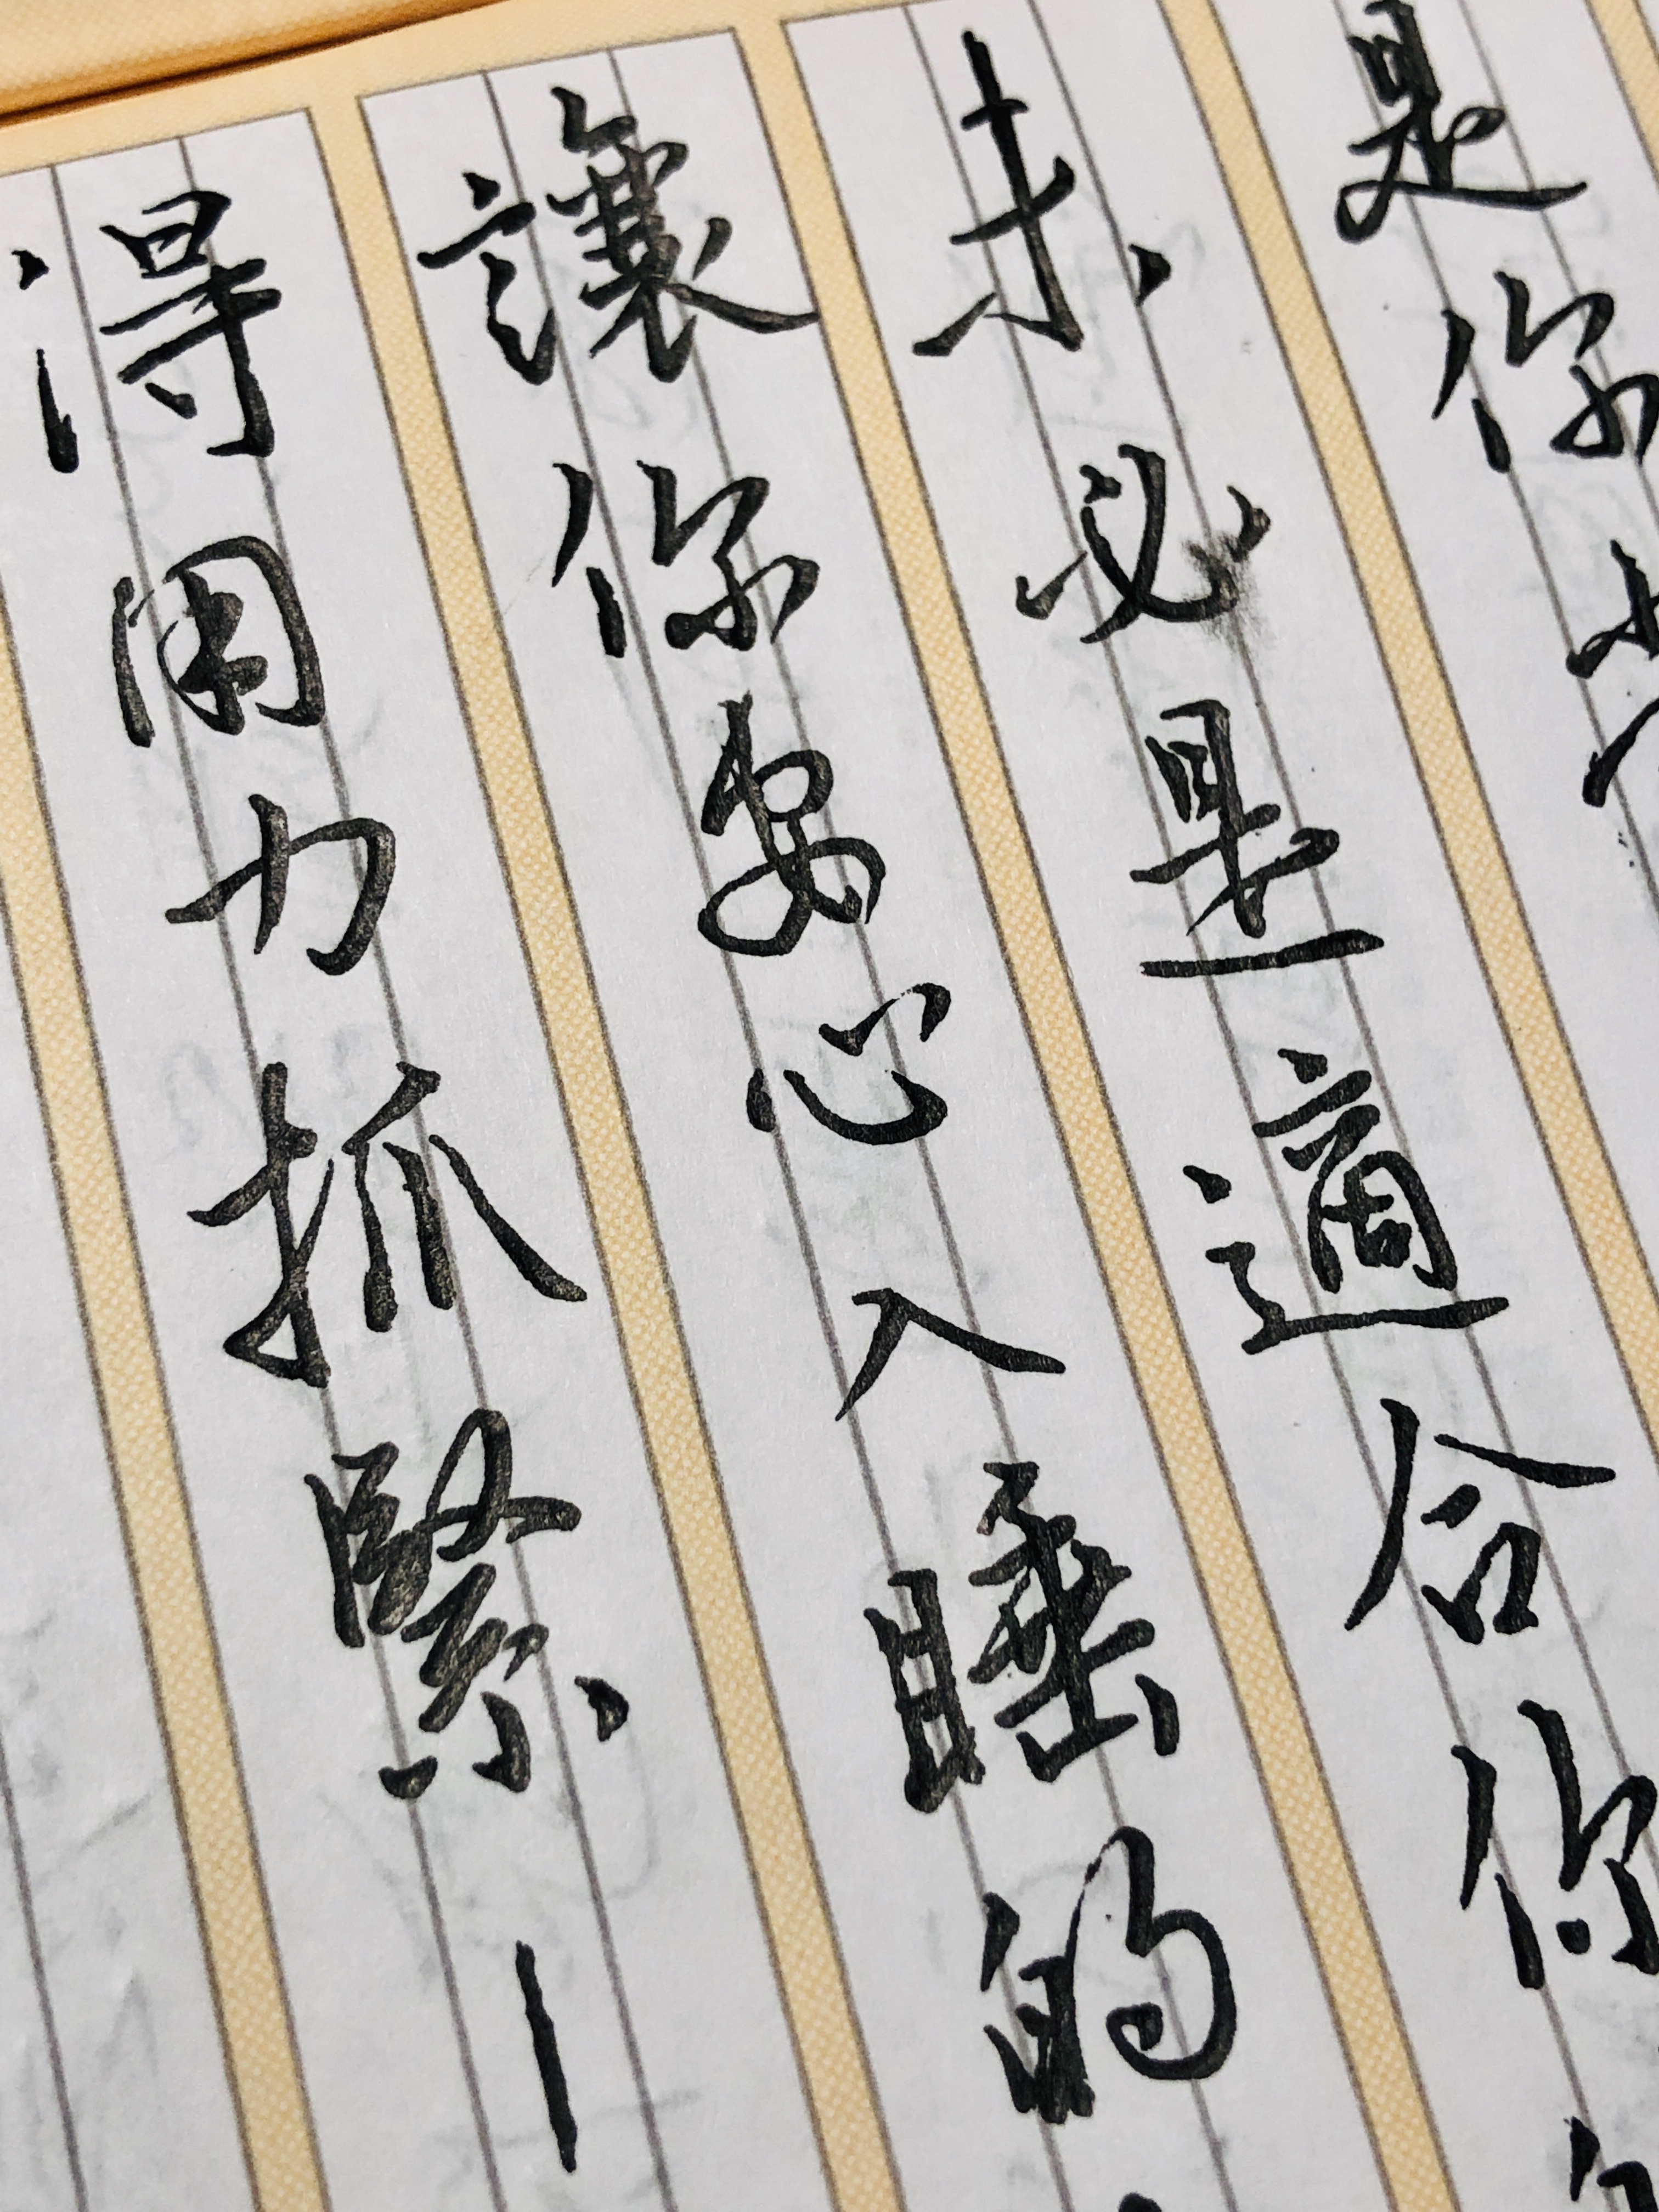 是你
未必是適合你
讓你安心入睡的
得用力抓緊一